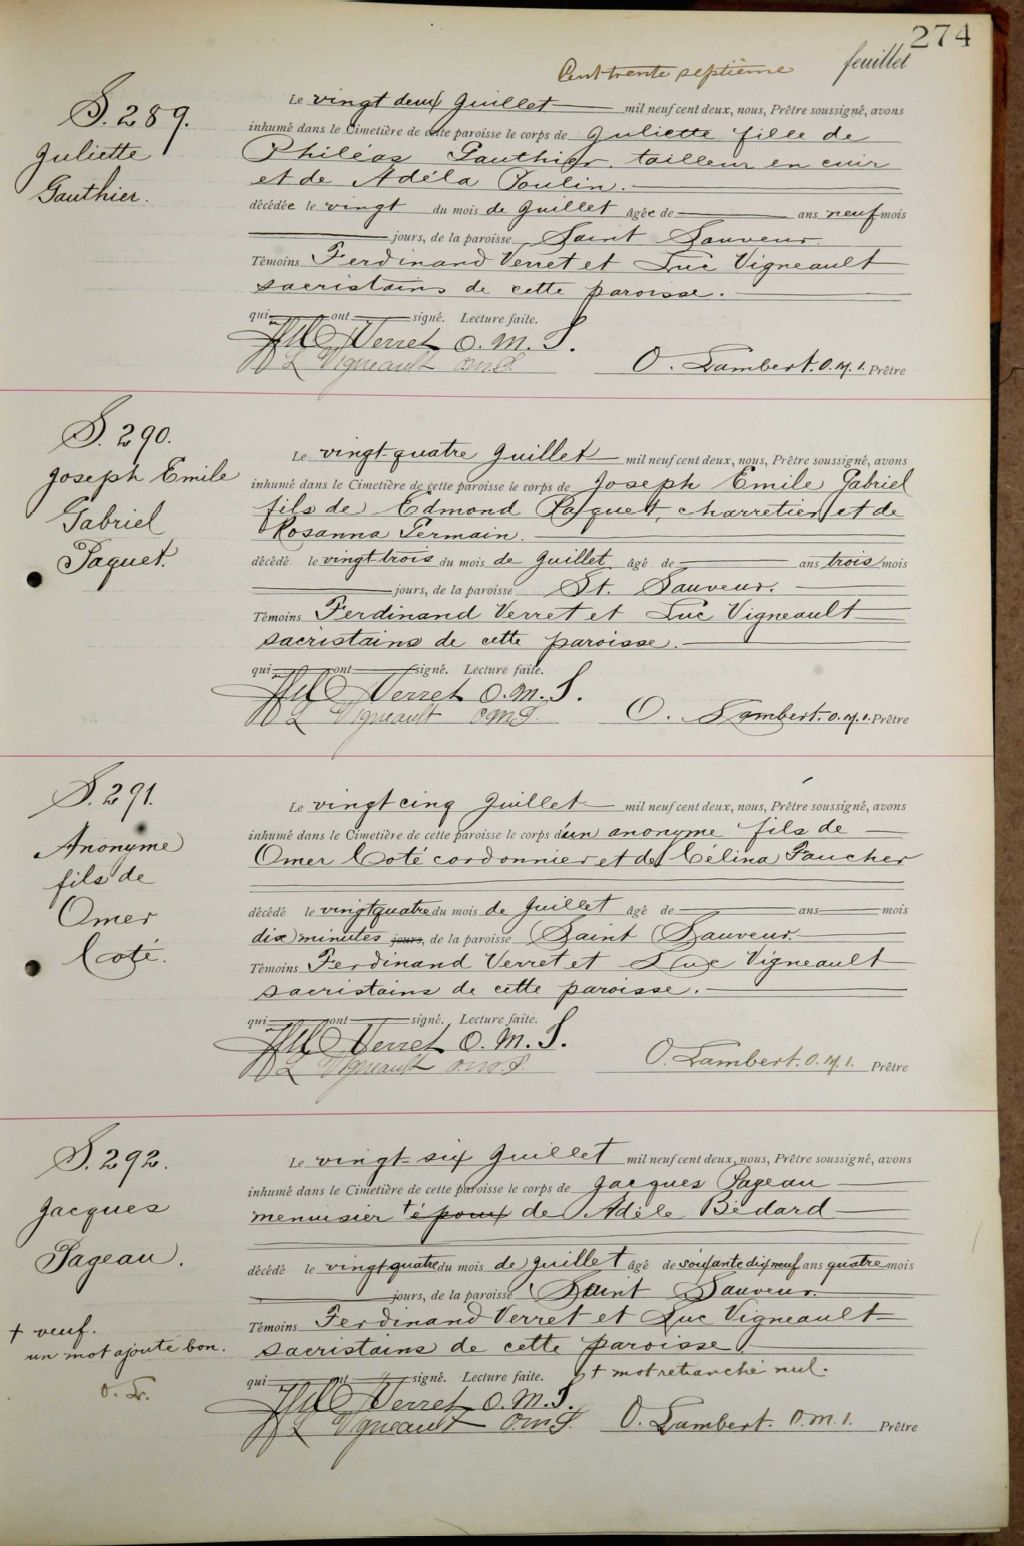 274
Cent trente septième feuillet
S. 289.
Juliette
Gauthier.
Le vingt deux Juillet mil neuf cent deux, nous, Prêtre soussigné, avons
inhumé dans le Cimetière de cette paroisse le corps de Juliette fille de
Philéas Gauthier, tailleur en cuir
et de Adéla Poulin.
décédée le vingt du mois de Juillet âgée de ans neuf mois
jours, de la paroisse Saint Sauveur.
Témoins Ferdinand Verret et Luc Vigneault
sacristains de cette paroisse.
qui ont signé. Lecture faite.
Verret O. M. S.
L Vigneault OMS.
O. Lambert. O. M. I. Prêtre
S. 290.
Joseph Emile
Gabriel
Paquet.
Le vingt-quatre Juillet mil neuf cent deux, nous, Prêtre soussigné, avons
inhumé dans le Cimetière de cette paroisse le corps de Joseph Emile Gabriel
fils de Edmond Paquet, charretier, et de
Rosanna Germain.
décédé le vingt trois du mois de Juillet âgé de ans trois mois
jours, de la paroisse St. Sauveur.
Témoins Ferdinand Verret et Luc Vigneault
sacristains de cette paroisse.
qui ont signé. Lecture faite.
Verret O. M. S.
L Vigneault OMS.
O. Lambert. O. M. I. Prêtre
S. 291.
Anonyme
fils de
Omer
Coté.
Le vingt cinq Juillet mil neuf cent deux, nous, Prêtre soussigné, avons
inhumé dans le Cimetière de cette paroisse le corps d'un anonyme fils de
Omer Coté cordonnier et de Célina Faucher
décédé le vingt quatre du mois de Juillet âgé de ans mois
dix minutes jours, de la paroisse Saint Sauveur.
Témoins Ferdinand Verret et Luc Vigneault
sacristains de cette paroisse.
qui ont signé. Lecture faite.
Verret O. M. S.
L Vigneault OMS.
O. Lambert. O. M. I. Prêtre
S. 292.
Jacques
Pageau.
+ veuf.
un mot ajouté bon.
O. L.
Le vingt-six Juillet mil neuf cent deux, nous, Prêtre soussigné, avons
inhumé dans le Cimetière de cette paroisse le corps de Jacques Pageau
menuisier + époux de Adèle Bédard
décédé le vingt quatre du mois de Juillet âgé de soixante dix neuf ans quatre mois
jours, de la paroisse Saint Sauveur.
Témoins Ferdinand Verret et Luc Vigneault
sacristains de cette paroisse.
qui ont signé. Lecture faite. + mot retranché nul.
Verret O. M. S.
L Vigneault OMS.
O. Lambert. O. M. I. Prêtre